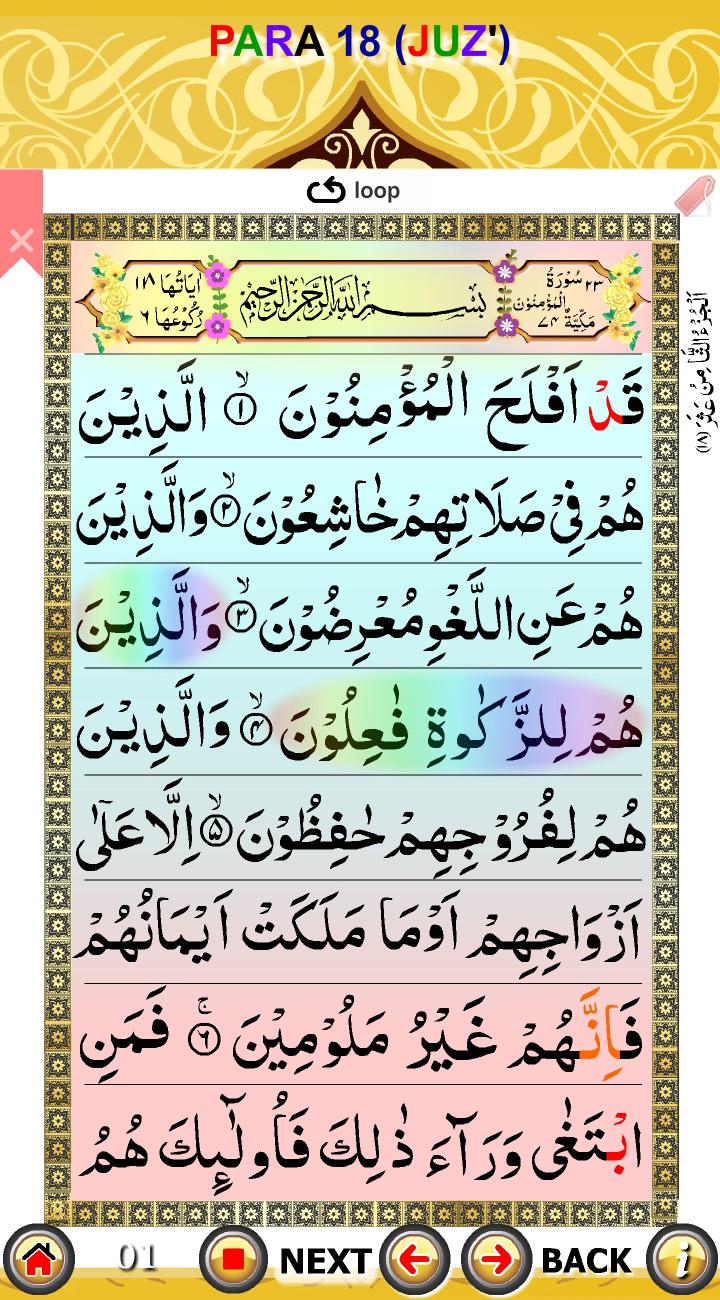 PARA 18 (JUZ')
loop
٢٣ سُوْرَةُ الْمُؤْمِنُوْنَ مَكِّيَّةٌ ٧٤
بِسْمِ اللّٰهِ الرَّحْمٰنِ الرَّحِيْمِ
اٰيَاتُهَا ١١٨ رُكُوْعُهَا ٦
اَلْجُزْءُ الثَّامِنُ عَشَرَ (١٨)
قَدْ اَفْلَحَ الْمُؤْمِنُوْنَ ۙ﴿١﴾ الَّذِيْنَ
هُمْ فِيْ صَلَاتِهِمْ خٰشِعُوْنَ ۙ﴿٢﴾ وَالَّذِيْنَ
هُمْ عَنِ اللَّغْوِ مُعْرِضُوْنَ ۙ﴿٣﴾ وَالَّذِيْنَ
هُمْ لِلزَّكٰوةِ فٰعِلُوْنَ ۙ﴿٤﴾ وَالَّذِيْنَ
هُمْ لِفُرُوْجِهِمْ حٰفِظُوْنَ ۙ﴿٥﴾ اِلَّا عَلٰٓى
اَزْوَاجِهِمْ اَوْمَا مَلَكَتْ اَيْمَانُهُمْ
فَاِنَّهُمْ غَيْرُ مَلُوْمِيْنَ ۚ﴿٦﴾ فَمَنِ
ابْتَغٰى وَرَآءَ ذٰلِكَ فَاُولٰٓئِكَ هُمُ
01 NEXT BACK i